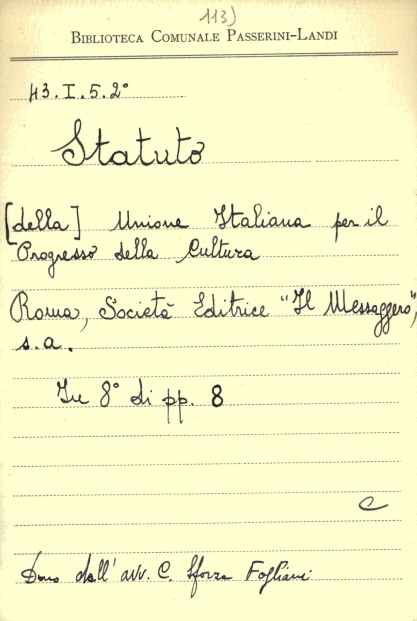 113)
BIBLIOTECA COMUNALE PASSERINI-LANDI
43.I.5.2°
Statuto
[della] Unione Italiana per il
Progresso della Cultura
Roma, Società Editrice "Il Messaggero",
s.a.
In 8° di pp. 8
C
Dono dall'avv. C. Sforza Fogliani